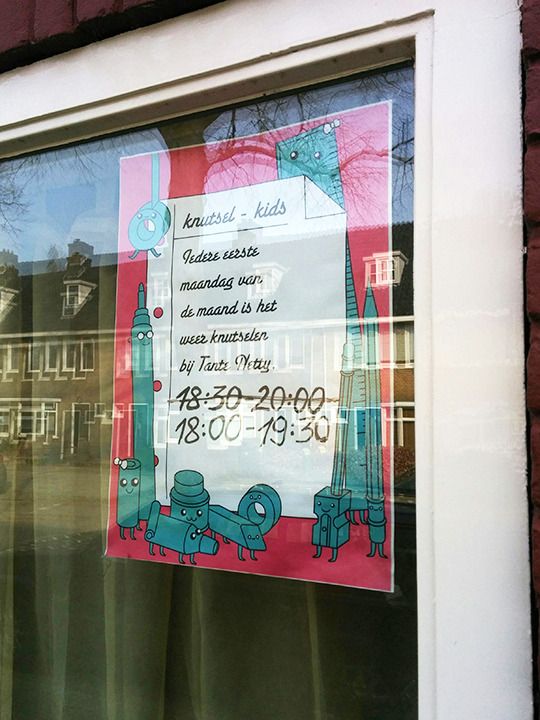 knutsel - kids
Iedere eerste
maandag van
de maand is het
weer knutselen
bij Tante Netty.
18:30-20:00
18:00-19:30